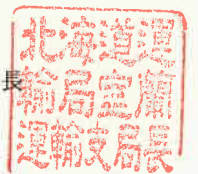 北海道運
輸局室蘭
運輸支局長
長